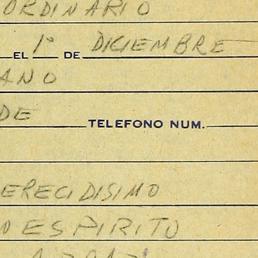 ORDINARIO
EL 1º DE DICIEMBRE
ANO
DE
TELEFONO NUM.
ERECIDISIMO
N ESPIRITO